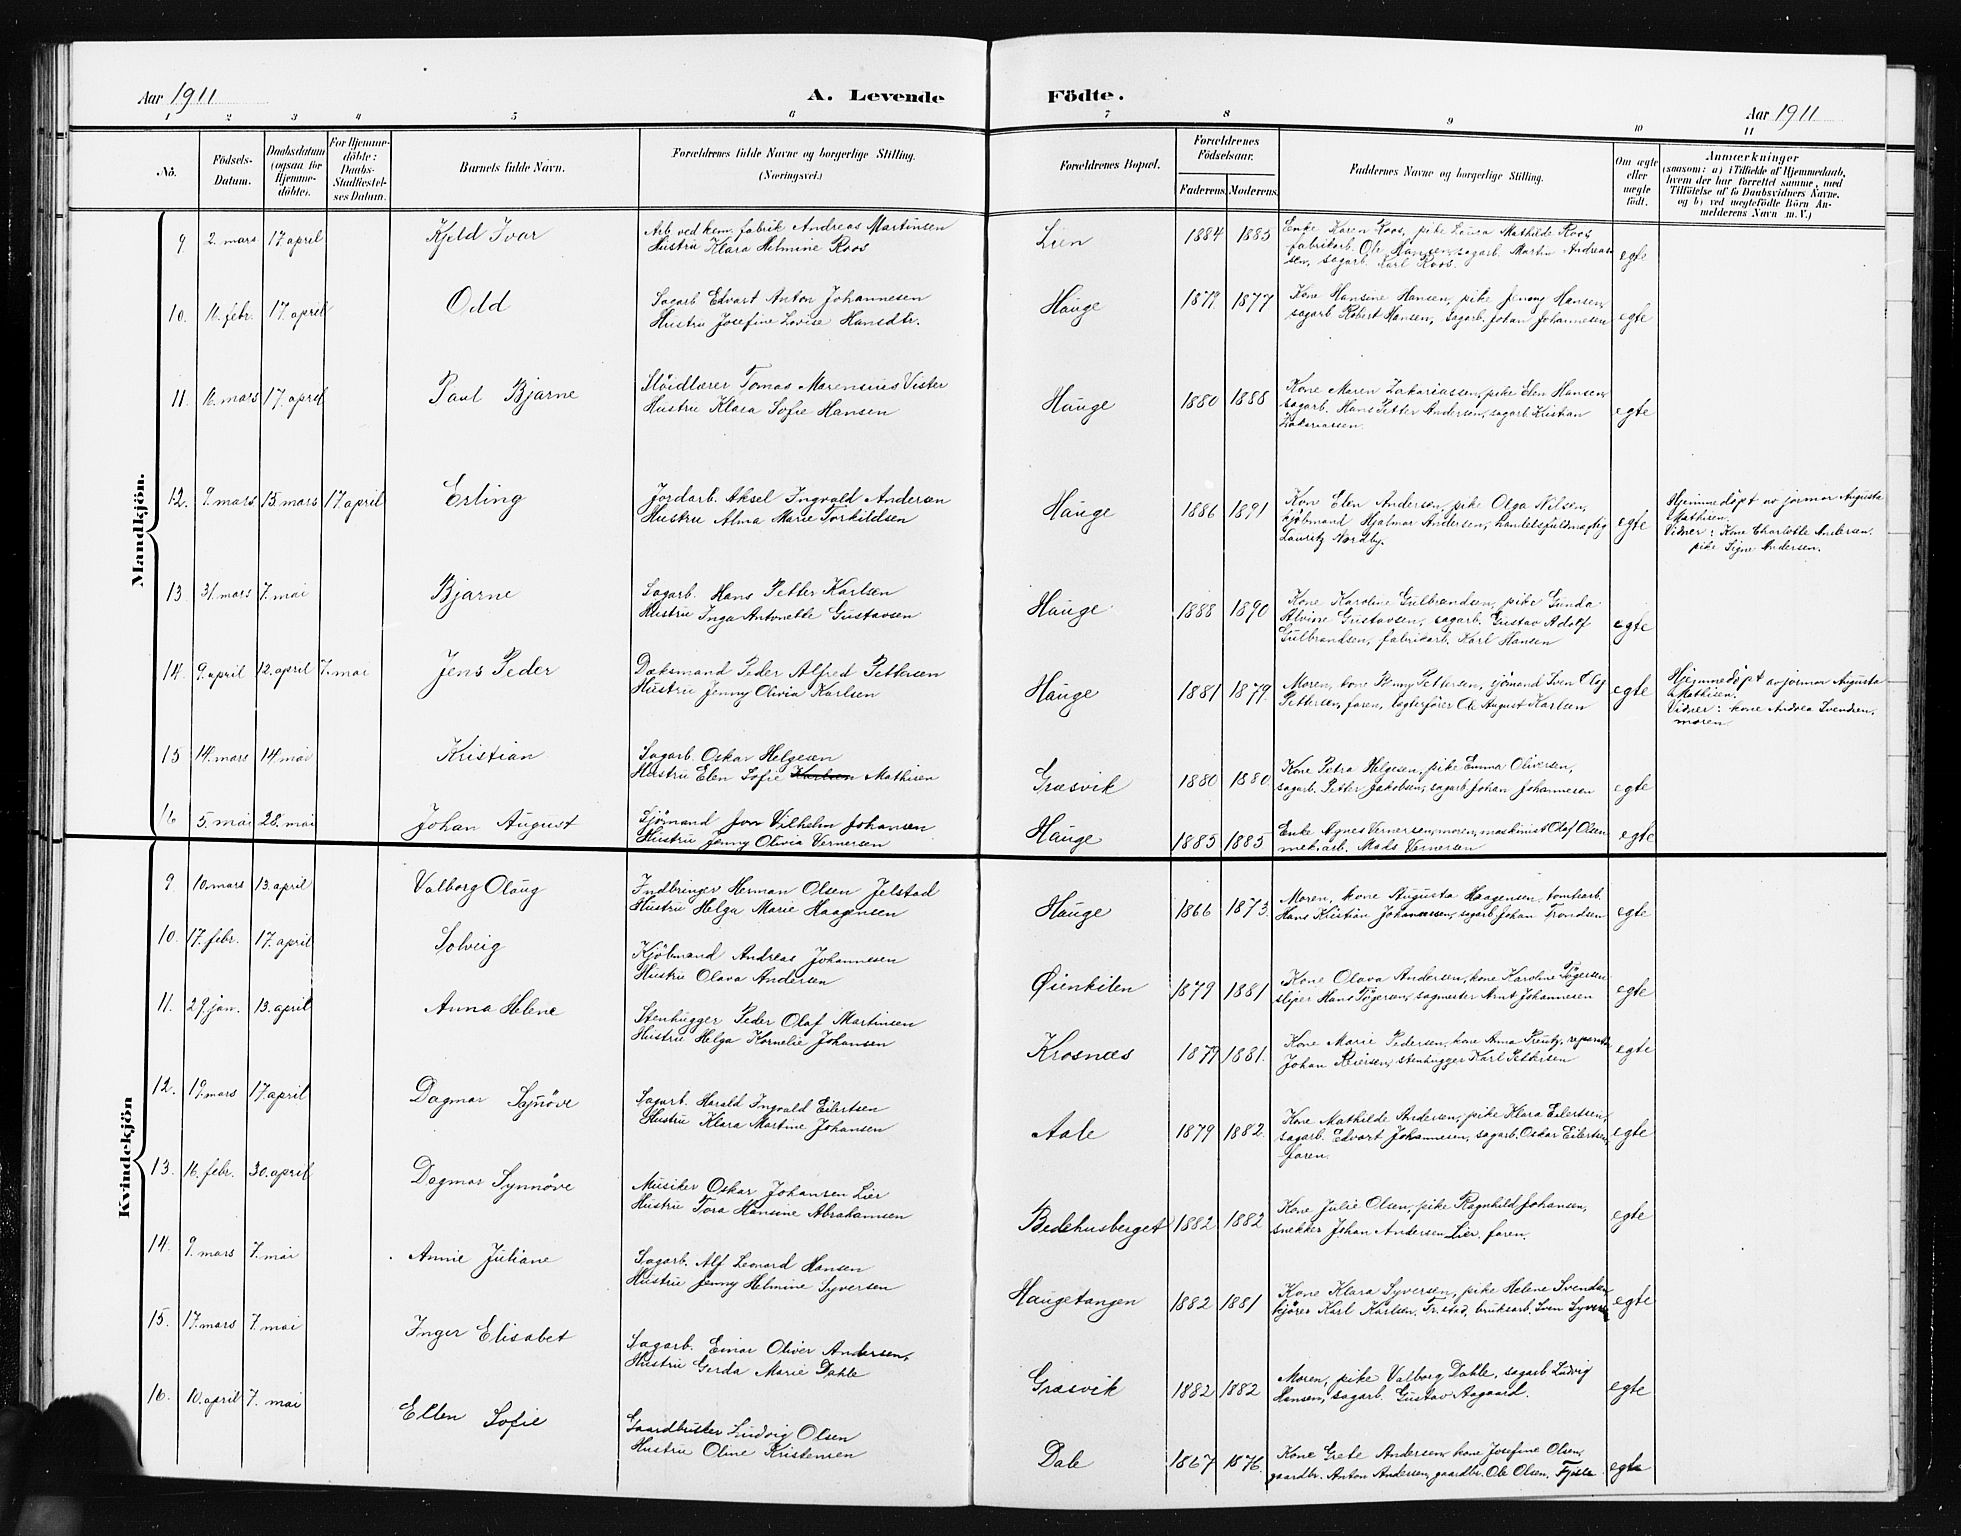 Aar 1911
A. Levende
Födte.
Aar 1911
1 2 3 4 5 6 7 8 9 10 11
Nô.
Födsels-
Datum.
Daabsdatum
(ogsaa for
Hjemme-
döbte).
For Hjemme-
döbte:
Daabs-
Stadfæstel-
ses Datum.
Barnets fulde Navn.
Forældrenes fulde Navne og borgerlige Stilling.
(Næringsvei.)
Forældrenes Bopæl.
Forældrenes
Födselsaar.
Faderens. Moderens.
Faddernes Navne og borgerlige Stilling.
Om ægte
eller
uægte
födt.
Anmærkninger
(saasom: a) i Tilfælde af Hjemmedaab,
hvem der har forrettet samme, med
Tilföielse af to Daabsvidners Navne,
og b) ved uægtefödte Börn An-
melderens Navn m. V.)
Mandkjön.
9 2. mars 17 april Kjeld Ivar
Arb. ved kem. fabrik Andreas Martinsen
Hustru Klara Helmine Roos
Lien 1884 1885
Enke Karen Roos, pike Lovisa Mathilde Roos
fabrikarb. Ole Hansen, sagarb. Martin Andreas-
sen, sagarb. Karl Roos.
egte
10. 11. febr. 17. april Odd
Sagarb Edvart Anton Johannesen
Hustru Josefine Lovise Hansdtr.
Hauge 1879 1877
Kone Hansine Hansen, pike Jenny Hansen,
sagarb Robert Hansen, sagarb. Johan Johannesen
egte
11. 16. mars 17. april Paul Bjarne
Slöidlærer Tomas Marensius Vister
Hustru Klara Sofie Hansen
Hauge 1880 1888
Kone Maren Zakariassen, pike Elen Hansen,
sagarb. Hans Petter Andersen, sagarb. Kristian
Zakariassen.
egte
12. 9. mars 15. mars 17. april Erling
Jordarb. Aksel Ingvald Andersen
Hustru Alma Marie Torkildsen
Hauge 1886 1891
Kone Elen Andersen, pike Olga Nilsen,
kjöbmand Hjalmar Andersen, handelsfuldmægtig
Lauritz Nordby.
egte
Hjemmedöpt av jormor Augusta
Mathisen.
Vidner: Kone Charlotte Andersen.
pike Signe Andersen.
13. 31. mars 7. mai Bjarne
Sagarb. Hans Petter Karlsen
Hustru Inga Antonette Gustavsen
Hauge 1888 1890
Kone Karoline Gulbrandsen, pike Gunda
Alvine Gustavsen, sagarb. Gustav Adolf
Gulbrandsen, fabrikarb. Karl Hansen
egte
14. 9. april 12. april 7. mai Jens Peder
Dæksmand Peder Alfred Pettersen
Hustru Jenny Olivia Karlsen
Hauge 1881 1879.
Moren, kone Penny Pettersen, sjömand Sven Olaf
Pettersen, faren, lægterförer Ole August Karlsen
egte
Hjemmedöpt av jormor Augusta
Mathisen.
Vidner: kone Andrea Svendsen,
moren
15 14. mars 14. mai Kristian
Sagarb. Oskar Helgesen
Hustru Elen Sofie Karlsen Mathisen
Græsvik 1880 1880.
Kone Petra Helgesen, pike Emma Oliversen,
sagarb. Petter Jakobsen, sagarb. Johan Johannesen
egte
16 5. mai 28. mai Johan August
Sjömand Jon Vilhelm Johansen
Hustru Jenny Olivia Vernersen
Hauge 1885 1885
Enke Agnes Vernersen, moren, maskinist Olaf Olsen
mek. arb. Mads Vernersen
egte
Kvindekjön
9. 10. mars 13. april Valborg Olaug
Indbringer Herman Olsen Jelstad
Hustru Helga Marie Haagensen
Hauge 1866 1873.
Moren, kone Augusta Haagensen, tomtearb.
Hans Kristian Johannessen, sagarb. Johan Trondsen
egte
10. 17. febr. 17. april Solveig
Kjöbmand Andreas Johannesen
Hustru Olava Andersen
Øienkilen 1879 1881
Kone Olava Andersen, kone Karoline Tögersen
sliper Hans Tögersen, sagmester Arnt Johannesen
egte
11. 29. jan. 13. april Anna Helene
Stenhugger Peder Olaf Martinsen
Hustru Helga Kornelie Johansen
Krosnæs 1879 1881.
Kone Marie Pedersen, kone Anna Preutz, reparatör
Johan Reiersen, stenhugger Karl Pettersen
egte
12. 19. mars 17. april Dagmar Synöve
Sagarb. Harald Ingvald Eilertsen
Hustru Klara Martine Johansen
Aale 1879 1882.
Kone Mathilde Andersen, pike Klara Eilertsen,
sagarb. Edvart Johannesen, sagarb. Oskar Eilertsen,
faren.
egte
13. 16. febr. 30. april Dagmar Synnöve
Musiker Oskar Johansen Lier
Hustru Tora Hansine Abrahamsen
Bedehusberget 1882 1882
Kone Julie Olsen, pike Ragnhild Johansen,
snekker Johan Andersen Lier, faren.
egte
14. 9. mars 7. mai Annie Juliane
Sagarb. Alf Leonard Hansen
Hustru Jenny Helmine Syversen
Haugetangen 1882 1881
Kone Klara Syversen, pike Helene Svendsen
kjörer Karl Karlsen, Fr.stad, bruksarb. Sven Syvers
egte
15. 17. mars 7. mai Inger Elisabet
Sagarb. Einar Oliver Andersen,
Hustru Gerda Marie Dahle
Græsvik 1882 1882
Moren, pike Valborg Dahle, sagarb Ludvig
Hansen, sagarb. Gustav Aagaard.
egte
16. 10. april 7. mai Ellen Sofie
Gaardbruker Ludvig Olsen
Hustru Oline Kristensen
Dale 1867 1876
Kone Grete Andersen, kone Josefine Olsen,
gaardbr. Anton Andersen, gaardbr. Ole Olsen, Fjelle.
egte